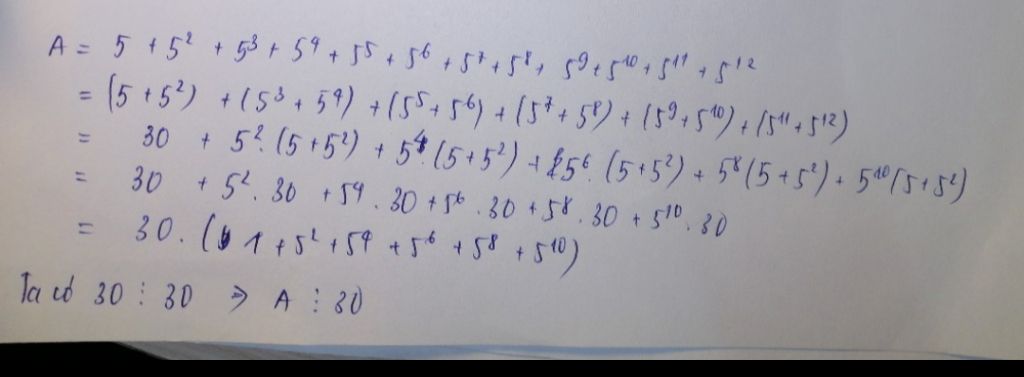 A = 5 + 5² + 5³ + 5⁴ + 5⁵ + 5⁶ + 5⁷ + 5⁸ + 5⁹ + 5¹⁰ + 5¹¹ + 5¹²
= (5 + 5²) + (5³ + 5⁴) + (5⁵ + 5⁶) + (5⁷ + 5⁸) + (5⁹ + 5¹⁰) + (5¹¹ + 5¹²)
= 30 + 5². (5 + 5²) + 5⁴. (5 + 5²) + 5⁶. (5 + 5²) + 5⁸ (5 + 5²) + 5¹⁰ (5 + 5²)
= 30 + 5². 30 + 5⁴. 30 + 5⁶. 30 + 5⁸. 30 + 5¹⁰. 30
= 30. (1 + 5² + 5⁴ + 5⁶ + 5⁸ + 5¹⁰)
Ta có 30 ⋮ 30 ⇒ A ⋮ 30